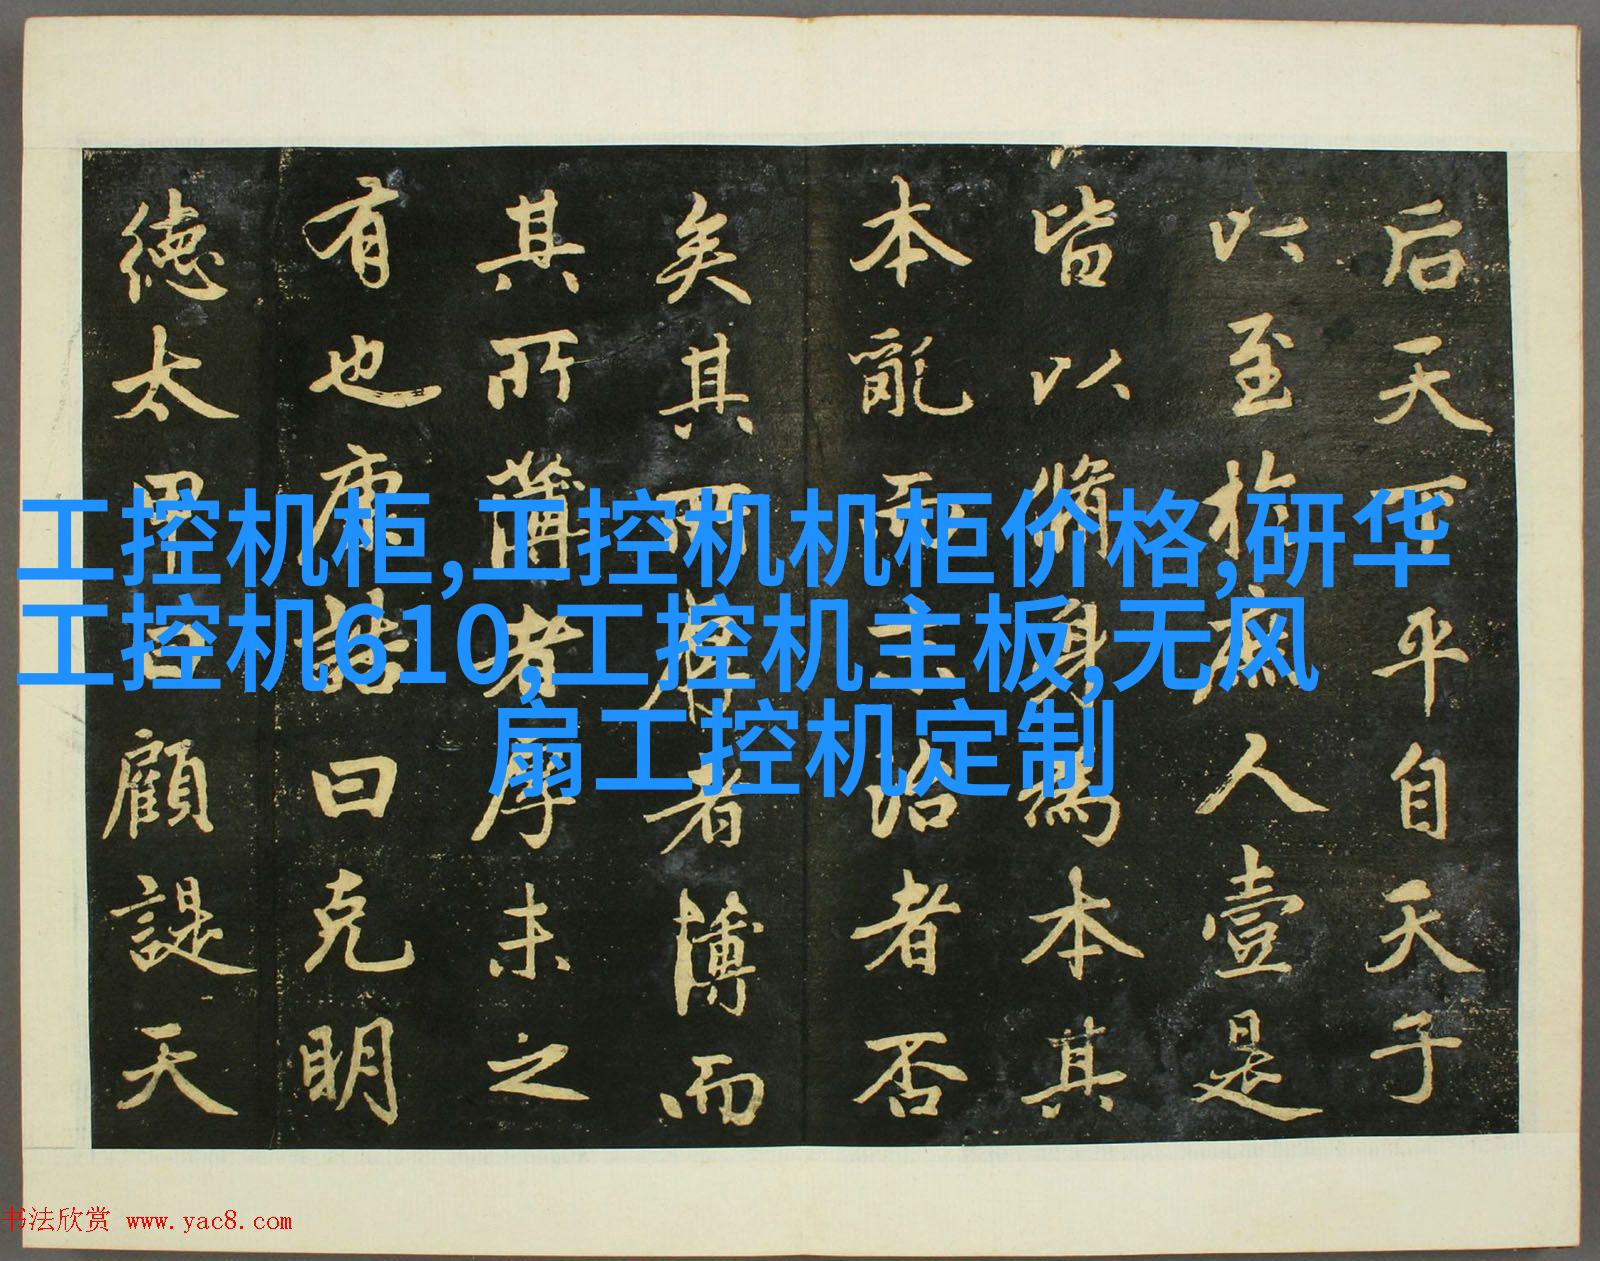 后天下平自天子
以至於庶人壹是
皆以脩身為本其
本亂而末治者否
矣其所厚者薄而
其所薄者厚未之
有也康誥曰克明
德太甲曰顧諟天
工控机柜,工控机机柜价格,研华
工控机610,工控机主板,无风
扇工控机定制
书法欣赏 www.yac8.com